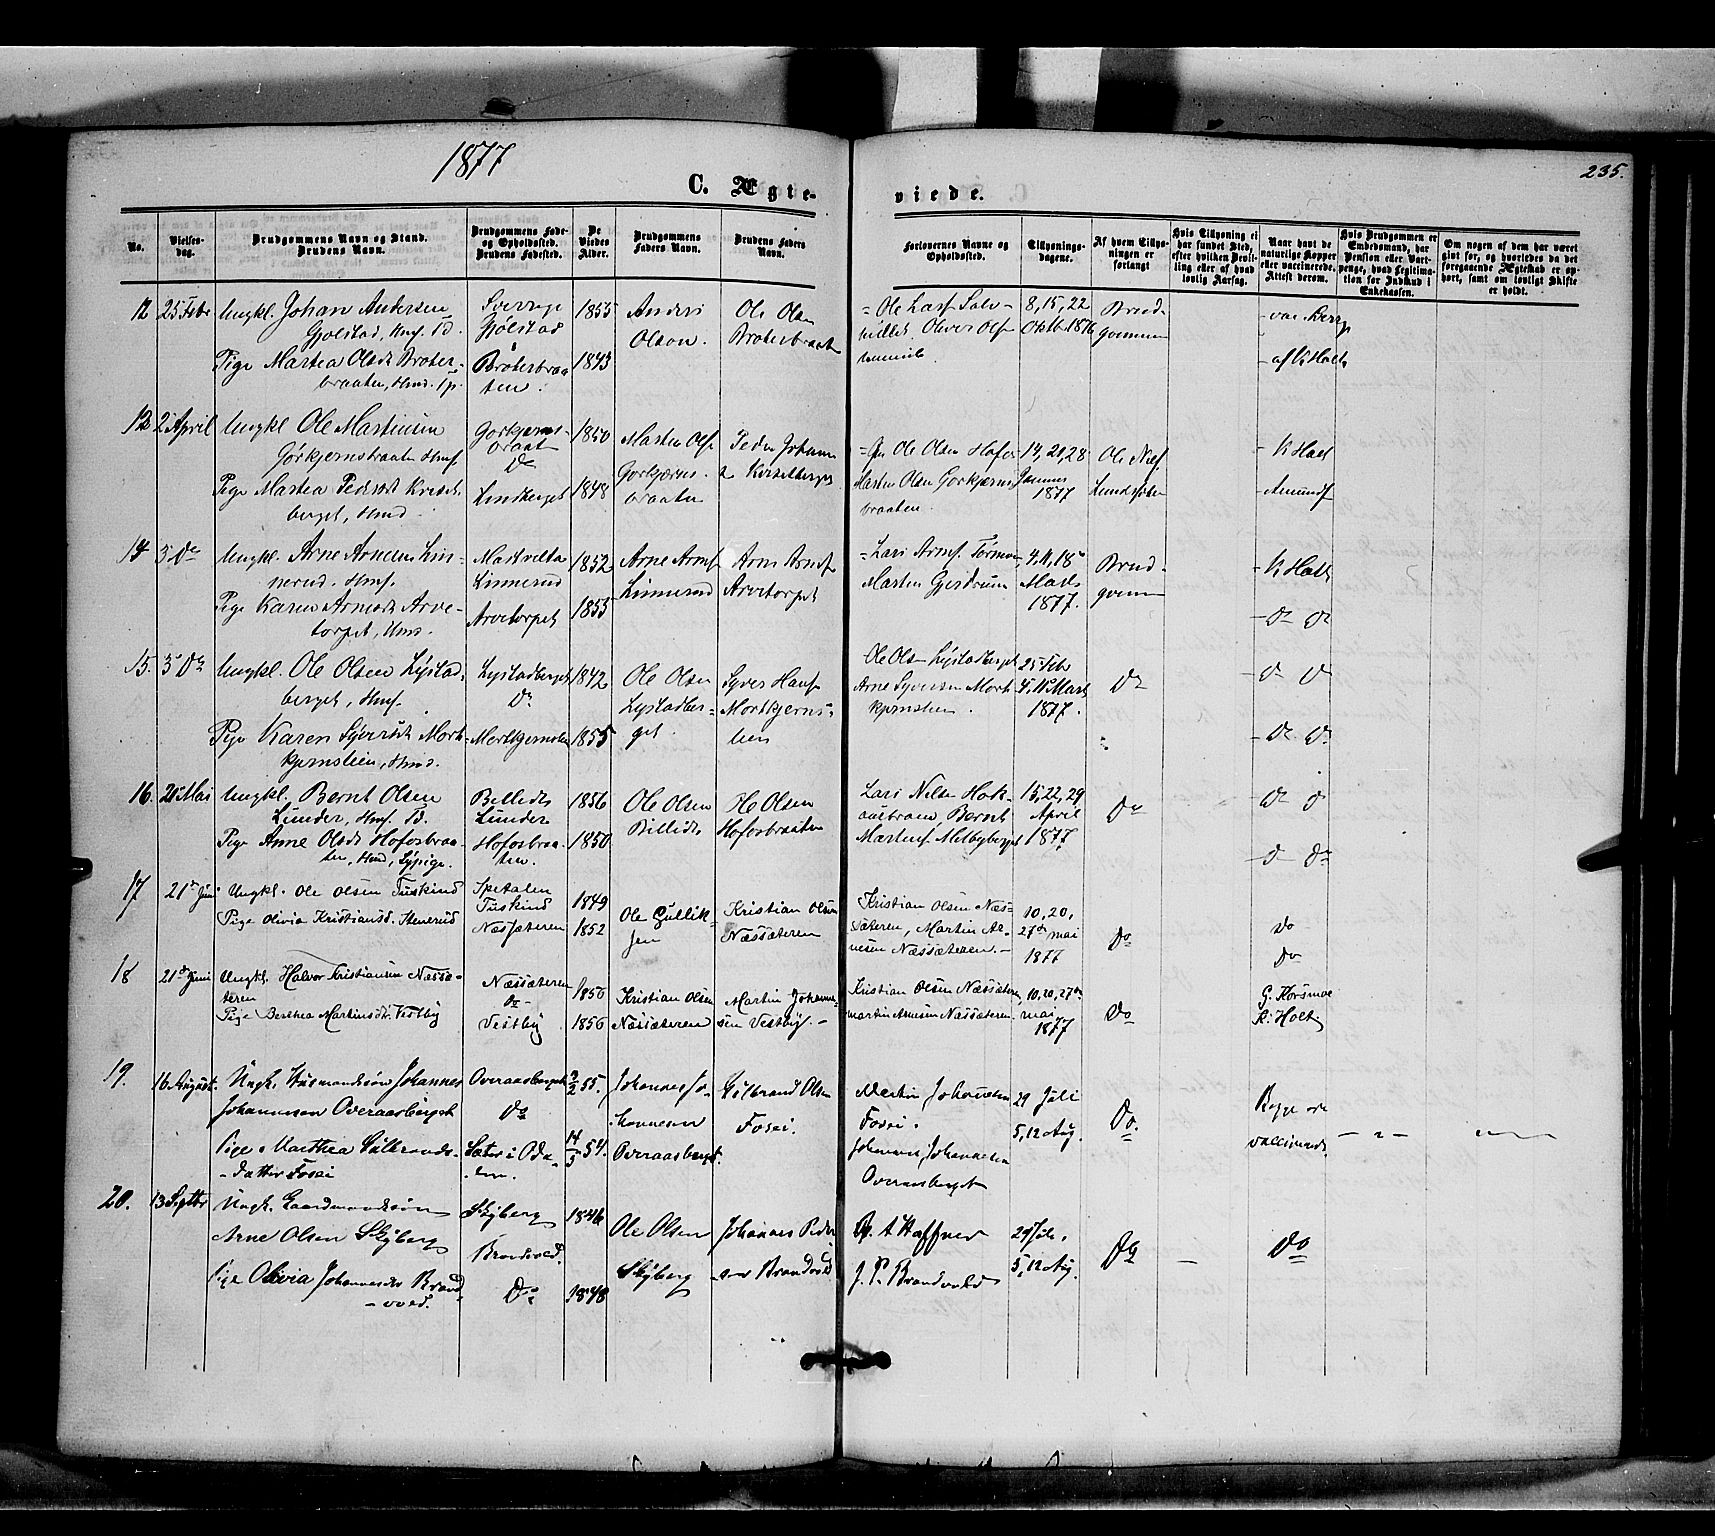 1877
235.
C. Ægte-
viede.
No.
Vielses-
dag.
Brudgommens Navn og Stand.
Brudens Navn.
Brudgommens Føde-
og Opholdssted.
Brudens Fødested.
De
Viedes
Alder.
Brudgommens
Faders Navn.
Brudens Faders
Navn.
Forlovernes Navne og
Opholdssted.
Tillysnings-
dagene.
Af hvem Tillys-
ningen er
forlangt
Hvis Tillysning ei
har fundet Sted,
efter hvilken Bevil-
ling eller af hvad
lovlig Aarsag.
Naar havt de
naturlige Kopper
eller vaccinerede.
Attest derom.
Hvis Brudgommen er
Embedsmand, har
Pension eller Vart-
penge, hvad Legitima-
tion for Indskud i
Enkekassen.
Om nogen af dem har været
gift før, og hvorledes da det
foregaaende Ægteskab er op-
hørt, samt om lovligt Skifte
er holdt.
12 25 Febr Ungkl. Johan Andersen
Gjølstad, Hmf. Id.
Pige Marthea Olsdt Broter-
braaten, Hmd.
Sverrige
Gjölstad
Bröterbraa-
ten.
1855
1843
Anders
Olson.
Ole Olsen
Broterbraaten
Ole Larss
Oliver Ols
8, 15, 22
Oktb. 1876
Brud-
gommen
af K Holt
12 2 April Ungkl Ole Martinsen
Görkjernsbraaten Hmf
Pige Marthea Pedersdt Kvisel-
berget, Hmd.
Gorkjerns-
braat
Do
Lindberget
1850
1848
Marten Ols
Gorkjerns-
braaten
Peder Johann
Kvisetberget
Ole Olsen Hofos
Marten Olsen Gorkjerns
braaten.
14, 21, 28
Januar
1877
Ole Niels
K Holt
Amunds
14 3 Do Ungkl. Arne Arnesen Lin-
nerud. Hmf.
Pige Karen Arnesdt Arve-
torpet, Hmd.
Linnerud
Arvetorpet
1852
1855
Arne Arns
Linnerud
Arne Arns
Arvetorpet
Lars Arns.
Marten Gjerdrum
4, 11, 18
Marts
1877.
Brud-
gommen
K Holt
Do Do
15. 3 Do Ungkl. Ole Olsen Lystad-
berget, Hmf.
Pige Karen Syversdt Mort-
kjernslien, Hmd.
Lystadberget
Do
Mortkjernslien
1842
1855
Ole Olsen
Lystadber-
get.
Syver Hans
Mortkjerns-
lien
Ole Olsen Lystadberget
Arne Syversen Mort-
kjernslien.
25 Febr
4, 11 Marts
1877.
Do
Do Do
Do Do
16. 20 Mai Ungkl. Bernt Olsen
Lunder, Hmf. B.
Pige Anne Olsdt Hofosbraa-
ten, Hmd, Sypige.
Billedts
Lunder
Hofosbraa-
ten.
1856
1850
Ole Olsen
Billidts
Ole Olsen
Hofosbraaten
Lars Nilsen Hok-
Bernt
Martins Melbyberget
15, 22, 29
April
1877
Do
Do Do
Do Do
17 21de Juni Ungkl. Ole Olsen Tuskind
Pige Olivia Kristiansd. Stenerud
Spetalen
Tuskind
Næssæteren
1849
1852
Ole Gullik-
sen
Kristian Olsen
Næssæteren
Kristian Olsen Næs-
sæteren, Martin Ar-
nesen Næssæteren. -
10, 20,
27de mai
1877
Do
Do
Do
18 21de Juni Ungkl. Halvor Kristiansen Næssæ-
teren
Pige Berthea Martinsdt. Vestby
Næssæteren
Do
Vestby
1850
1856
Kristian Olsen
Næssæteren
Martin Johanne-
sen Vestby. -
Kristian Olsen Næssæteren
Martin Arnesen Næssæteren.
10, 20, 27de
mai
1877
Do
G. Korsmoe
K. Holt
19. 16 August. Ungk. Husmandssøn Johannes
Johannesen Overaasberget
Pige Marthea Gulbrands-
datter Fosei
Overaasberget
Do
Sæter i Oda-
len.
2/2 55.
14/5 54.
Johannes Jo-
hannesen
Overaasberget.
Gulbrand Olsen
Fosei.
Martin Johansen
Fosei.
Johannes Johannesen
Overaasberget
29 Juli
5, 12 Aug.
Do.
Begge ere
vaccinerede
20. 13 Septbr Ungk. Gaardmandssøn
Arne Olsen Skyberg
Pige Olivia Johannesdtr Brand-
vold.
Skyberg
Brandvold.
Do
1846
1848
Ole Olsen
Skyberg
Johannes Peder-
sen Brandvold
A Haffner
J. P. Brandvold
29 Juli,
5, 12 Aug.
Do
Do